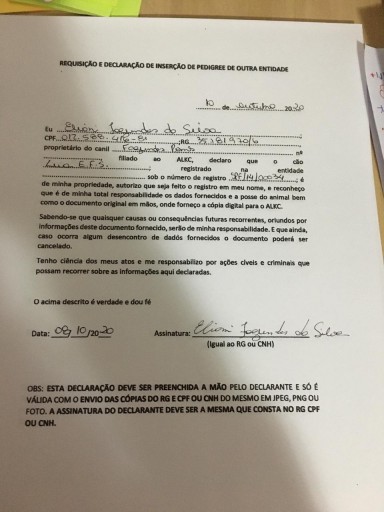 REQUISIÇÃO E DECLARAÇÃO DE INSERÇÃO DE PEDIGREE DE OUTRA ENTIDADE
10 de outubro 2020
Eu Elioni Fagundes da Silva
CPF 017.588.476-81 ;RG
proprietário do canil Fagundes ; nº
filiado ao ALKC, declaro que o cão
Lua E.F.S. ; registrado na entidade
sob o número de registro ; é
de minha propriedade, autorizo que seja feito o registro em meu nome, e reconheço
que é de minha total responsabilidade os dados fornecidos e a posse do animal bem
como o documento original em mãos, onde forneço a cópia digital para o ALKC.
Sabendo-se que quaisquer causas ou consequências futuras recorrentes, oriundos por
informações deste documento fornecido, serão de minha responsabilidade. E que ainda,
caso ocorra algum desencontro de dados fornecidos o documento poderá ser
cancelado.
Tenho ciência dos meus atos e me responsabilizo por ações cíveis e criminais que
possam recorrer sobre as informações aqui declaradas.
O acima descrito é verdade e dou fé
Data: 08/10/2020 Assinatura: Elioni Fagundes da Silva
(Igual ao RG ou CNH)
OBS: ESTA DECLARAÇÃO DEVE SER PREENCHIDA A MÃO PELO DECLARANTE E SÓ É
VÁLIDA COM O ENVIO DAS CÓPIAS DO RG E CPF OU CNH DO MESMO EM JPEG, PNG OU
FOTO. A ASSINATURA DO DECLARANTE DEVE SER A MESMA QUE CONSTA NO RG CPF
OU CNH.